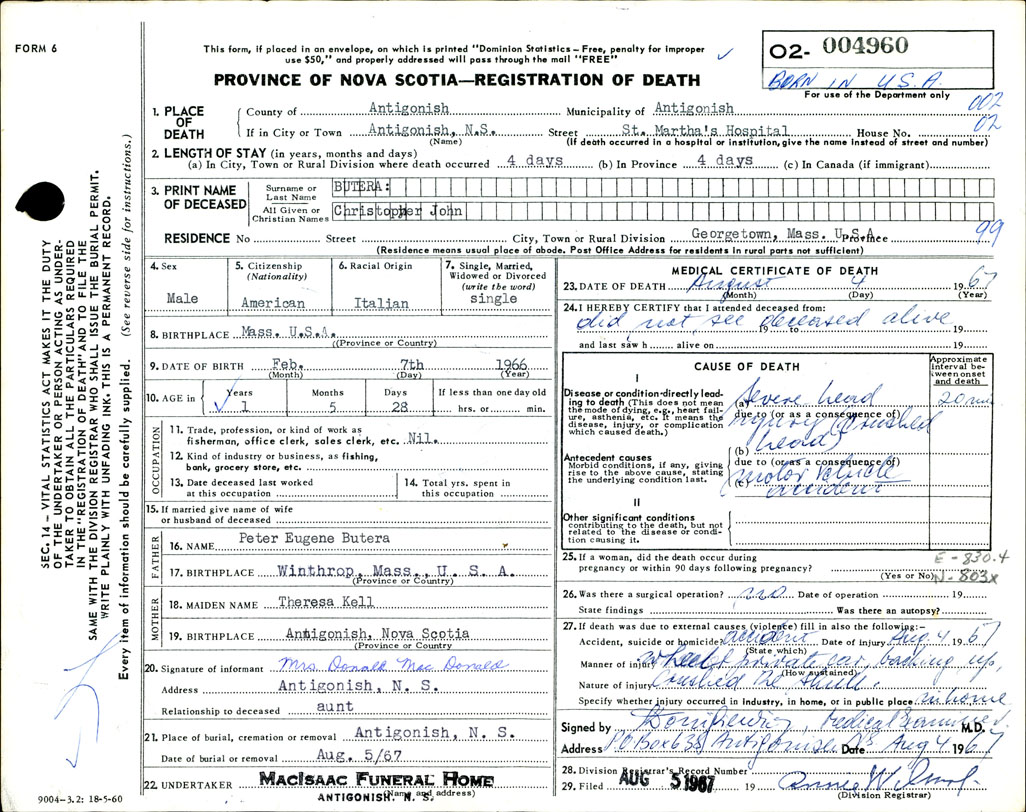 FORM 6
This form, if placed in an envelope, on which is printed "Dominion Statistics – Free, penalty for improper
use $50," and properly addressed will pass through the mail "FREE"
PROVINCE OF NOVA SCOTIA—REGISTRATION OF DEATH
02- 004960
BORN IN U.S.A.
For use of the Department only
002
02
1. PLACE OF DEATH
County of Antigonish Municipality of Antigonish
If in City or Town Antigonish, N.S. Street St. Martha's Hospital House No.
(Name) (If death occurred in a hospital or institution, give name instead of street and number)
2. LENGTH OF STAY (in years, months and days)
(a) In City, Town or Rural Division where death occurred 4 days (b) In Province 4 days (c) In Canada (if immigrant)
3. PRINT NAME OF DECEASED
Surname or Last Name BUTERA:
All Given or Christian Names Christopher John
99
RESIDENCE No Street City, Town or Rural Division Georgetown, Mass. U.S.A. Province
(Residence means usual place of abode. Post Office Address for residents in rural parts not sufficient)
4. Sex
Male
5. Citizenship
(Nationality)
American
6. Racial Origin
Italian
7. Single, Married,
Widowed or Divorced
(write the word)
single
8. BIRTHPLACE Mass. U.S.A.
((Province or Country)
9. DATE OF BIRTH Feb. 7th 1966
(Month) (Day) (Year)
10. AGE in Years Months Days If less than one day old
1 5 28 hrs. or min.
OCCUPATION
11. Trade, profession, or kind of work as
fisherman, office clerk, sales clerk, etc. Nil.
12. Kind of industry or business, as fishing,
bank, grocery store, etc.
13. Date deceased last worked
at this occupation
14. Total yrs. spent in
this occupation
15. If married give name of wife
or husband of deceased
FATHER
16. NAME Peter Eugene Butera
17. BIRTHPLACE Winthrop, Mass., U. S. A.
(Province or Country)
MOTHER
18. MAIDEN NAME Theresa Kell
19. BIRTHPLACE Antigonish, Nova Scotia
(Province or Country)
20. Signature of informant Mrs. Donald MacDonald
Address Antigonish, N. S.
Relationship to deceased aunt
21. Place of burial, cremation or removal Antigonish, N. S.
Date of burial or removal Aug. 5/67
22. UNDERTAKER MacIsaac Funeral Home
(Name and address)
ANTIGONISH, N. S.
MEDICAL CERTIFICATE OF DEATH
23. DATE OF DEATH August 4 1967
(Month) (Day) (Year)
24. I HEREBY CERTIFY that I attended deceased from:
did not see deceased alive
to 19
and last saw h alive on 19
CAUSE OF DEATH
Approximate
interval between onset
and death
I
Disease or condition directly leading to death (This does not mean
the mode of dying, e.g., heart failure, asthenia, etc. It means the
disease, injury, or complication
which caused death.)
(a) Severe head 20 min
due to (or as a consequence of)
injury (crushed
(b) head)
Antecedent causes
Morbid conditions, if any, giving
rise to the above cause, stating
the underlying condition last.
due to (or as a consequence of)
(c) motor vehicle
accident
II
Other significant conditions
contributing to the death, but not
related to the disease or condition causing it.
25. If a woman, did the death occur during
pregnancy or within 90 days following pregnancy?
(Yes or No)
E-830.4
N-803x
26. Was there a surgical operation? no Date of operation 19
State findings Was there an autopsy?
27. If death was due to external causes (violence) fill in also the following:–
Accident, suicide or homicide? accident Date of injury Aug. 4 1967
(State which)
Manner of injury wheel of private car, backing up,
(How sustained)
Nature of injury Crushed the skull.
Specify whether injury occurred in industry, in home, or in public place in home
Signed by Medical Examiner M.D.
Address P.O. Box 638 Antigonish NS Date Aug 4 1967
28. Division Registrar's Record Number
29. Filed AUG 5 1967 19
(Division Registrar)
SEC. 14 – VITAL STATISTICS ACT MAKES IT THE DUTY
OF THE UNDERTAKER OR PERSON ACTING AS UNDERTAKER TO OBTAIN ALL THE PARTICULARS REQUIRED
IN THE "REGISTRATION OF DEATH" AND TO FILE THE
SAME WITH THE DIVISION REGISTRAR WHO SHALL ISSUE THE BURIAL PERMIT.
WRITE PLAINLY WITH UNFADING INK. THIS IS A PERMANENT RECORD.
Every item of information should be carefully supplied. (See reverse side for instructions.)
9004–3.2: 18-5-60